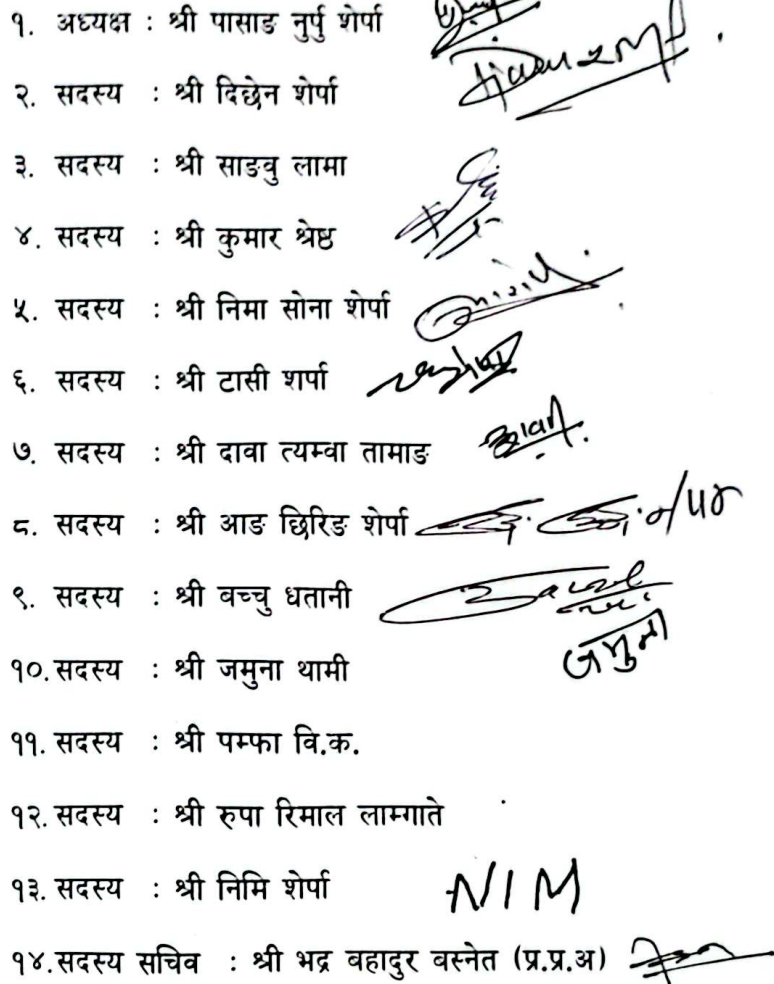 १. अध्यक्ष : श्री पासाङ नुर्पु शेर्पा
२. सदस्य : श्री दिछेन शेर्पा
३. सदस्य : श्री साङवु लामा
४. सदस्य : श्री कुमार श्रेष्ठ
५. सदस्य : श्री निमा सोना शेर्पा
६. सदस्य : श्री टासी शर्पा
७. सदस्य : श्री दावा त्यम्वा तामाङ
८. सदस्य : श्री आङ छिरिङ शेर्पा
९. सदस्य : श्री बच्चु धतानी
जमुना
१०. सदस्य : श्री जमुना थामी
११. सदस्य : श्री पम्फा वि.क.
१२. सदस्य : श्री रुपा रिमाल लाम्गाते
१३. सदस्य : श्री निमि शेर्पा NIM
१४. सदस्य सचिव : श्री भद्र बहादुर बस्नेत (प्र.प्र.अ)